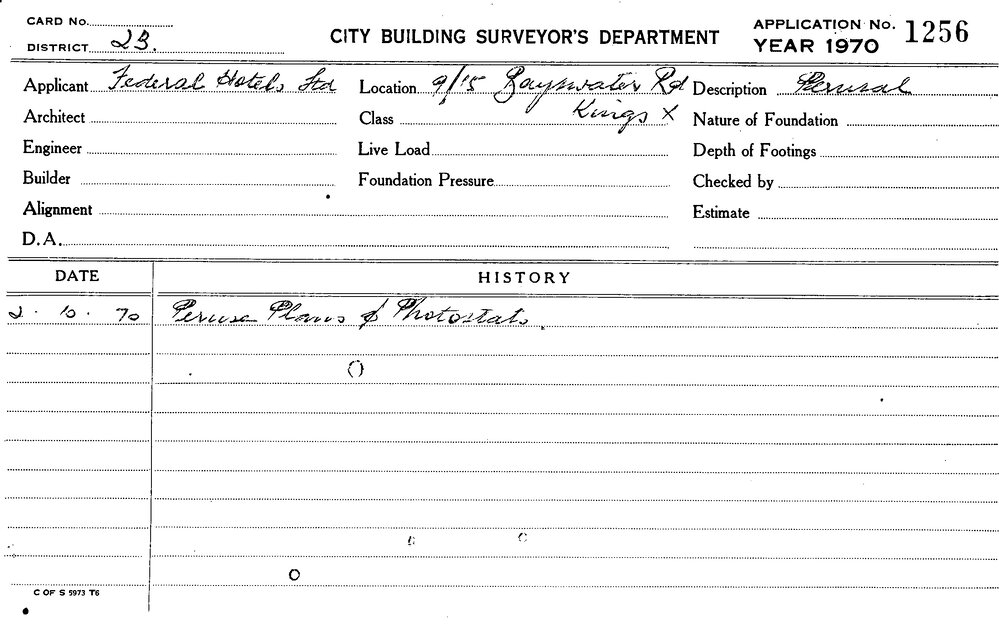 CARD No.
DISTRICT 23.
CITY BUILDING SURVEYOR'S DEPARTMENT
APPLICATION No. 1256
YEAR 1970
Applicant Federal Hotels Ltd Location 9/15 Bayswater Rd Description Perusal
Kings X
Architect Class Nature of Foundation
Engineer Live Load Depth of Footings
Builder Foundation Pressure Checked by
Alignment Estimate
D.A.
DATE HISTORY
2. 10. 70 Peruse Plans & Photostats.
C OF S 5973 T6